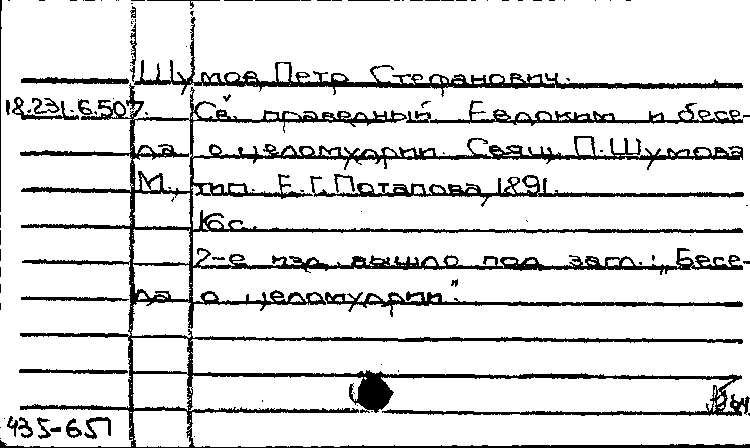 Шумов, Петр Стефанович.
18.231.6.507. Св. праведный Евдоким и бесе-
да о целомудрии. Свящ. П. Шумова
М., тип. Е. Г. Потапова, 1891.
16 с.
2-е изд. вышло под загл.: „Бесе-
да о целомудрии".
435-651